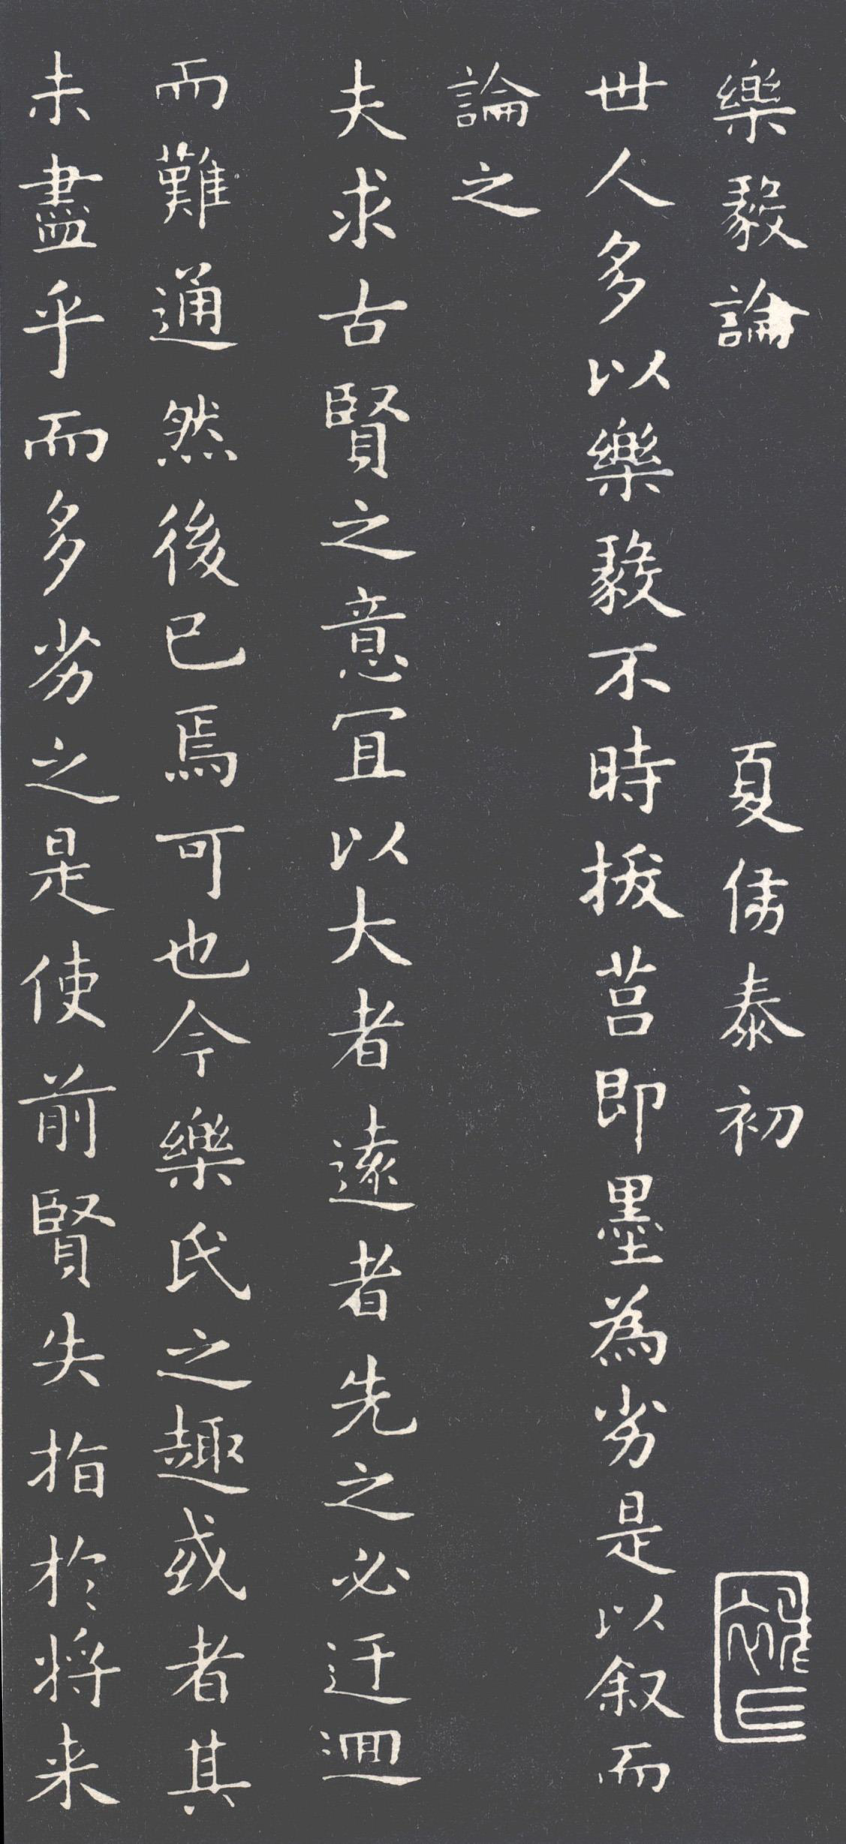 樂毅論 夏侯泰初
世人多以樂毅不時拔莒即墨為劣是以叙而
論之
夫求古賢之意冝以大者遠者先之必迂迴
而難通然後已焉可也今樂氏之趣或者其
未盡乎而多劣之是使前賢失指於將来